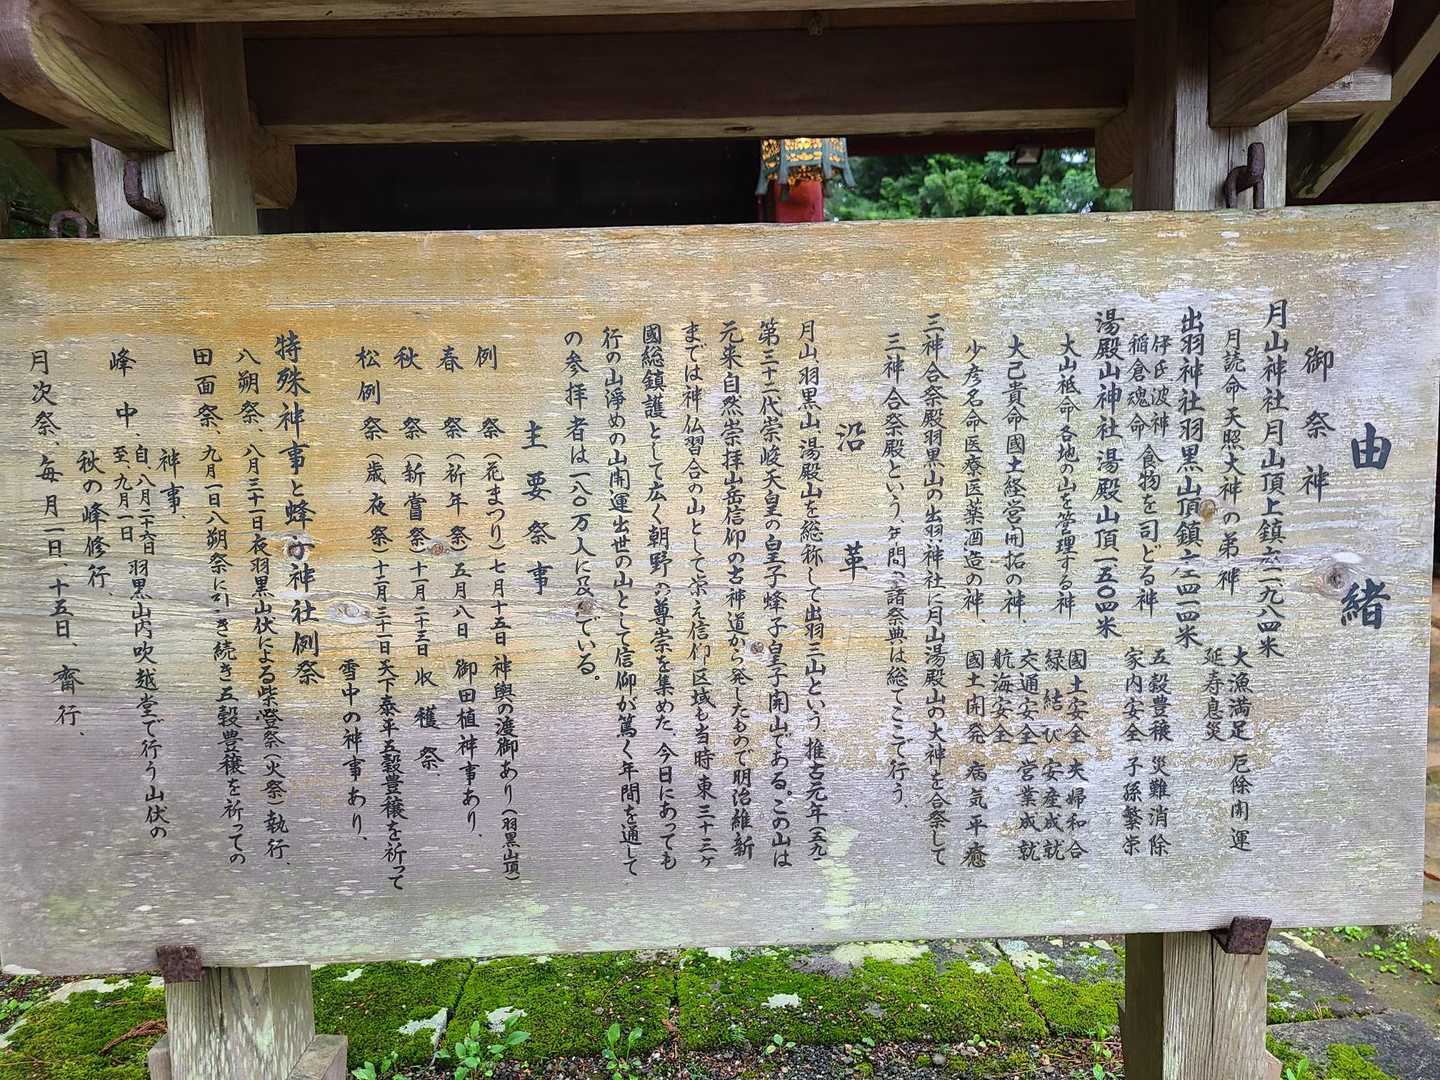 由緒
御祭神
月山神社月山頂上鎮座一九八四米
月読命天照大神の弟神
大漁満足 厄除開運
延寿息災
出羽神社羽黒山頂鎮座四一四米
伊氐波神
稲倉魂命 食物を司どる神
五穀豊穣 災難消除
家内安全 子孫繁栄
湯殿山神社湯殿山頂一五〇四米
大山祇命各地の山を管理する神
大己貴命國土経営開拓の神、
少彦名命医療医薬酒造の神、
國土安全 夫婦和合
緑結び 安産成就
交通安全 営業成就
航海安全
國土開発 病気平癒
三神合祭殿羽黒山の出羽神社に月山湯殿山の大神を合祭して
三神合祭殿という、年間の諸祭典は総てここで行う、
沿革
月山羽黒山湯殿山を総称して出羽三山という 推古元年(五九)
第三十二代崇峻天皇の皇子蜂子皇子開山である。この山は
元来自然崇拝山岳信仰の古神道から発したもので明治維新
までは神仏習合の山として栄え信仰区域も当時東三十三ヶ
國総鎮護として広く朝野の尊崇を集めた、今日にあっても
行の山淨めの山開運出世の山として信仰が篤く年間を通して
の参拝者は一八〇万人に及でいる。
主要祭事
例祭(花まつり)七月十五日 神輿の渡御あり(羽黒山頂)
春祭(祈年祭)五月八日 御田植神事あり、
秋祭(新嘗祭)十一月二十三日 収穫祭、
松例祭(歳夜祭)十二月三十一日天下泰平五穀豊穣を祈って
雪中の神事あり、
特殊神事と蜂子神社例祭
八朔祭、八月三十一日夜羽黒山伏による柴燈祭(火祭)執行、
田面祭、九月一日八朔祭に引き続き五穀豊穣を祈っての
神事、
峰中、自、八月二十六日
至、九月一日 羽黒山内吹越堂で行う山伏の
秋の峰修行、
月次祭、毎月一日、十五日、齋行、